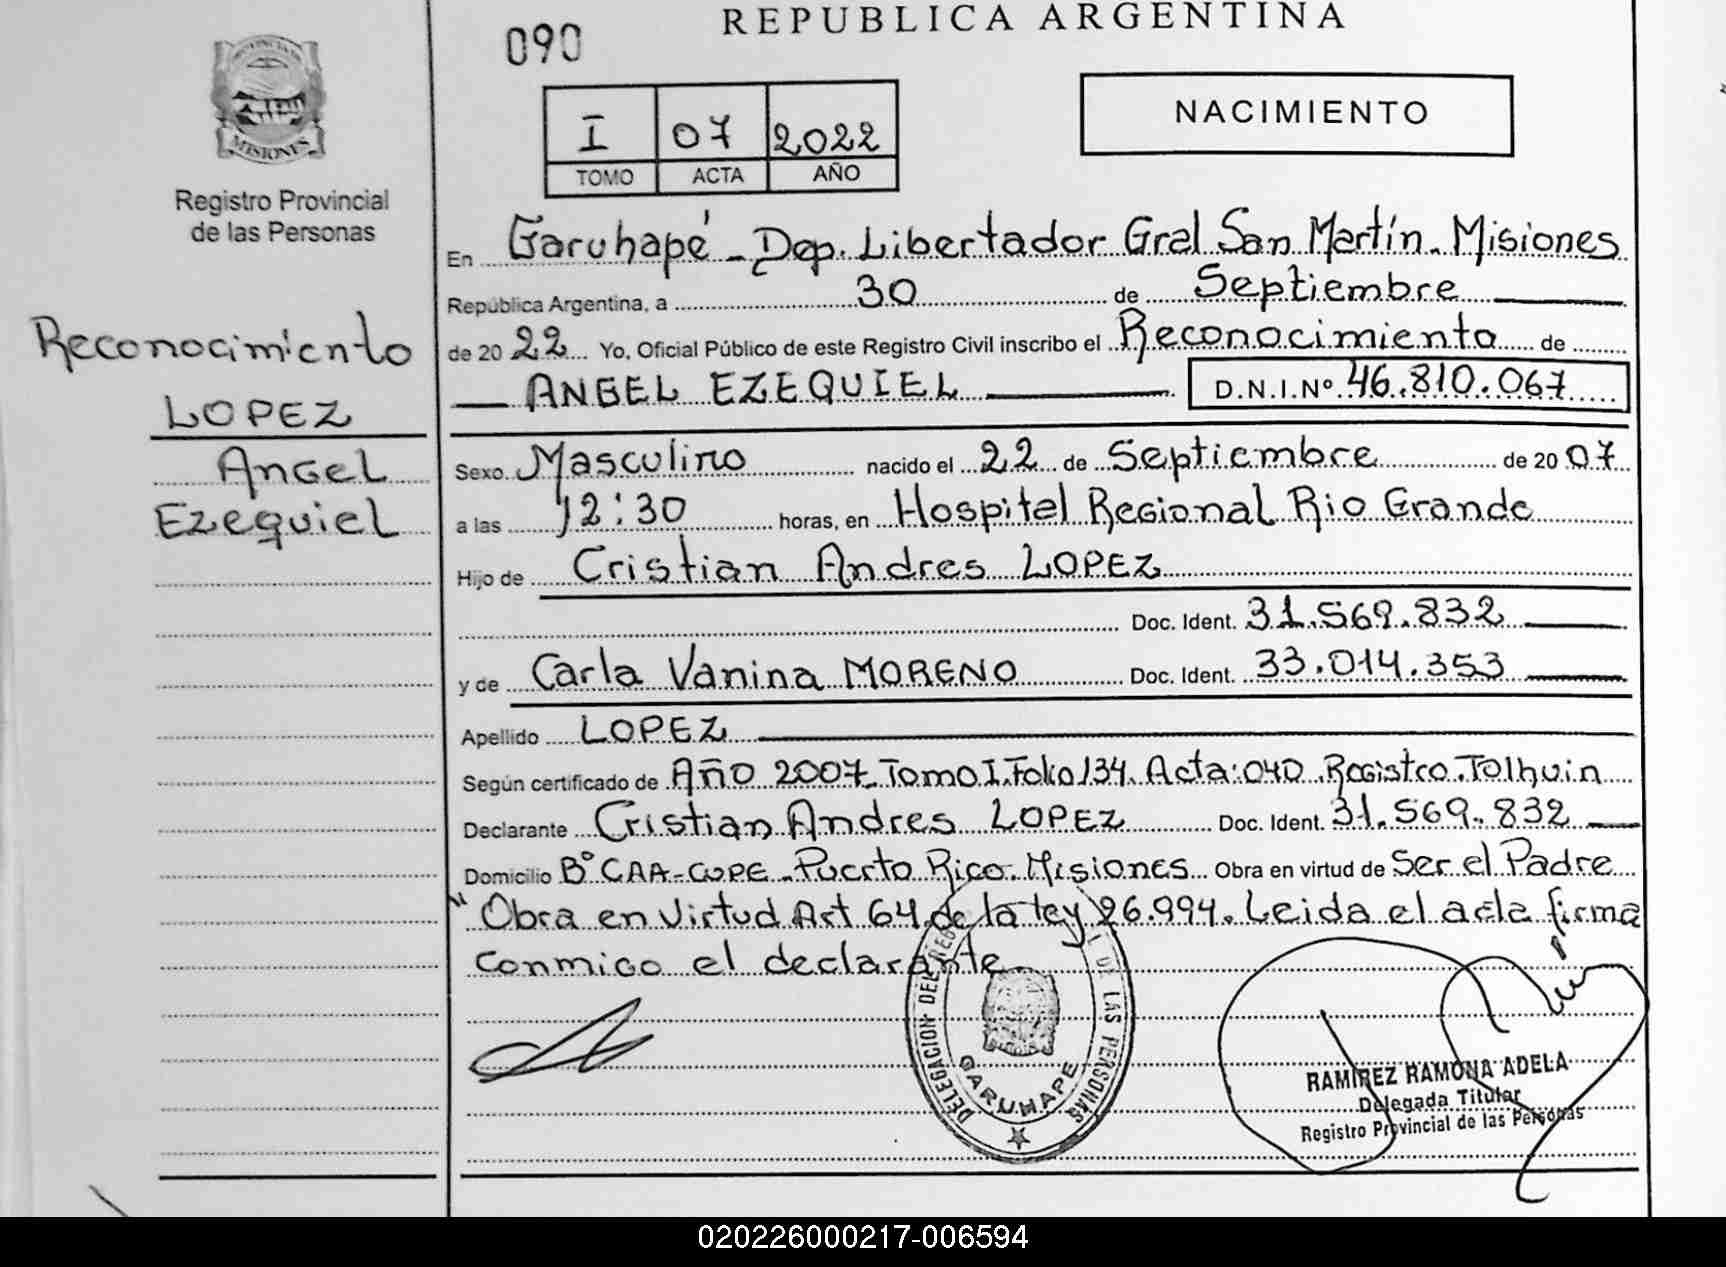 REPUBLICA ARGENTINA
090
PROVINCIA DE
MISIONES
Registro Provincial
de las Personas
I 07 2022
TOMO ACTA AÑO
NACIMIENTO
Reconocimiento
LOPEZ
Angel
Ezequiel
En Garuhapé - Dep. Libertador Gral San Martín - Misiones
República Argentina, a 30 de Septiembre
de 20 22 Yo, Oficial Público de este Registro Civil inscribo el Reconocimiento de
ANGEL EZEQUIEL D.N.I.Nº 46.810.067
Sexo Masculino nacido el 22 de Septiembre de 20 07
a las 12:30 horas, en Hospital Regional Rio Grande
Hijo de Cristian Andres LOPEZ
Doc. Ident. 31.569.832
y de Carla Vanina MORENO Doc. Ident. 33.014.353
Apellido LOPEZ
Según certificado de Año 2007 Tomo I. Folio 134. Acta: 040. Registro. Tolhuin
Declarante Cristian Andres LOPEZ Doc. Ident. 31.569.832
Domicilio Bº CAA-GUPE - Puerto Rico - Misiones Obra en virtud de Ser el Padre
"Obra en virtud Art 64 de la ley 26.994. Leida el acta firma
conmigo el declarante
DELEGACION DEL REG DE LAS PERSONAS
GARUHAPE
RAMIREZ RAMONA ADELA
Delegada Titular
Registro Provincial de las Personas
020226000217-006594